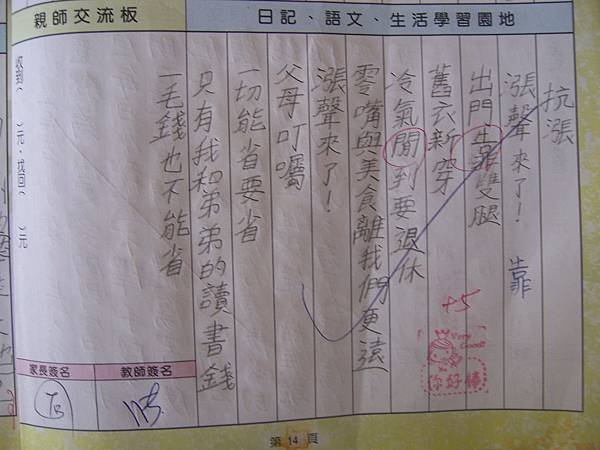 日記、語文、生活學習園地
抗漲
漲聲來了！
靠
出門靠雙腿
舊衣新穿
冷氣閒到要退休
零嘴與美食離我們更遠
漲聲來了！
父母叮囑
一切能省要省
只有我和弟弟的讀書錢
一毛錢也不能省
+5
Very Good!
你好棒
親師交流板
收到（　）元，找回（　）元
教師簽名
家長簽名
第 14 頁